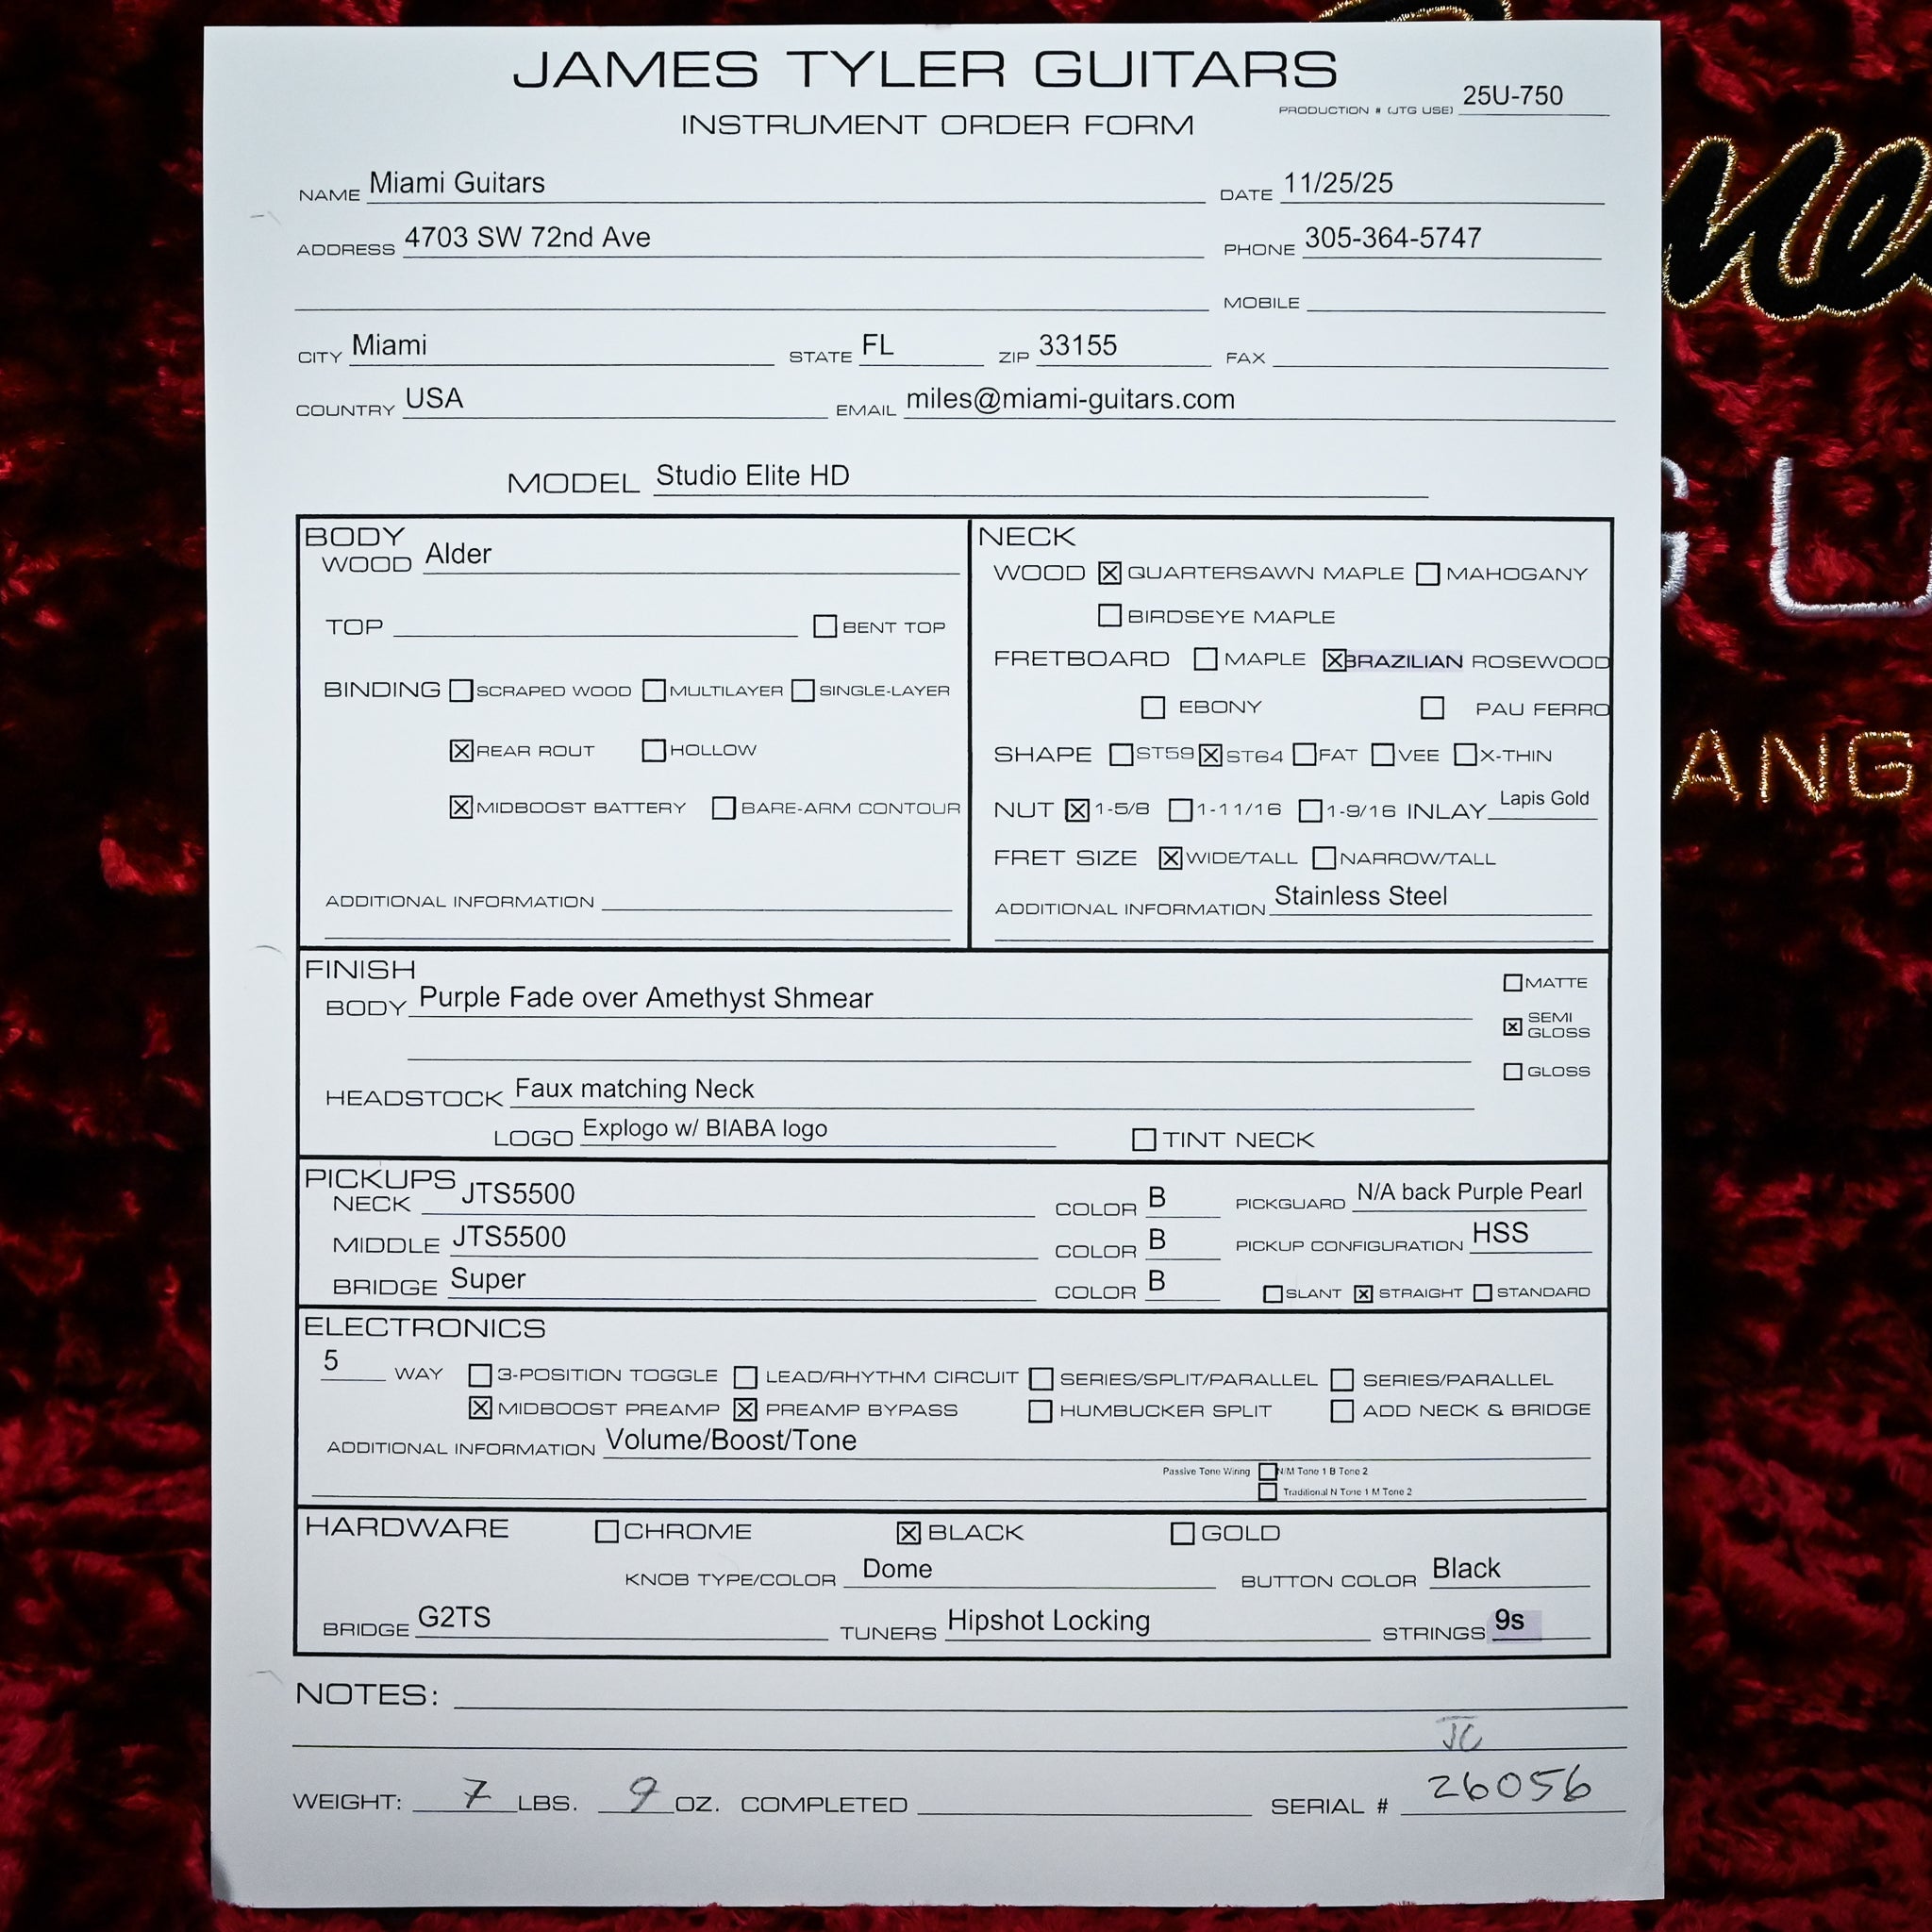 JAMES TYLER GUITARS
INSTRUMENT ORDER FORM
PRODUCTION # (JTG USE) 25U-750
NAME Miami Guitars DATE 11/25/25
ADDRESS 4703 SW 72nd Ave PHONE 305-364-5747
MOBILE
CITY Miami STATE FL ZIP 33155 FAX
COUNTRY USA EMAIL miles@miami-guitars.com
MODEL Studio Elite HD
BODY
WOOD Alder
TOP ☐ BENT TOP
BINDING ☐ SCRAPED WOOD ☐ MULTILAYER ☐ SINGLE-LAYER
☒ REAR ROUT ☐ HOLLOW
☒ MIDBOOST BATTERY ☐ BARE-ARM CONTOUR
ADDITIONAL INFORMATION
NECK
WOOD ☒ QUARTERSAWN MAPLE ☐ MAHOGANY
☐ BIRDSEYE MAPLE
FRETBOARD ☐ MAPLE ☒ BRAZILIAN ROSEWOOD
☐ EBONY ☐ PAU FERRO
SHAPE ☐ ST59 ☒ ST64 ☐ FAT ☐ VEE ☐ X-THIN
NUT ☒ 1-5/8 ☐ 1-11/16 ☐ 1-9/16 INLAY Lapis Gold
FRET SIZE ☒ WIDE/TALL ☐ NARROW/TALL
ADDITIONAL INFORMATION Stainless Steel
FINISH
BODY Purple Fade over Amethyst Shmear
☐ MATTE
☒ SEMI GLOSS
☐ GLOSS
HEADSTOCK Faux matching Neck
LOGO Explogo w/ BIABA logo ☐ TINT NECK
PICKUPS
NECK JTS5500 COLOR B PICKGUARD N/A back Purple Pearl
MIDDLE JTS5500 COLOR B PICKUP CONFIGURATION HSS
BRIDGE Super COLOR B ☐ SLANT ☒ STRAIGHT ☐ STANDARD
ELECTRONICS
5 WAY ☐ 3-POSITION TOGGLE ☐ LEAD/RHYTHM CIRCUIT ☐ SERIES/SPLIT/PARALLEL ☐ SERIES/PARALLEL
☒ MIDBOOST PREAMP ☒ PREAMP BYPASS ☐ HUMBUCKER SPLIT ☐ ADD NECK & BRIDGE
ADDITIONAL INFORMATION Volume/Boost/Tone
Passive Tone Wiring ☐ N/M Tone 1 B Tone 2
☐ Traditional N Tone 1 M Tone 2
HARDWARE ☐ CHROME ☒ BLACK ☐ GOLD
KNOB TYPE/COLOR Dome BUTTON COLOR Black
BRIDGE G2TS TUNERS Hipshot Locking STRINGS 9s
NOTES:
JC
WEIGHT: 7 LBS. 9 OZ. COMPLETED SERIAL # 26056
ANG